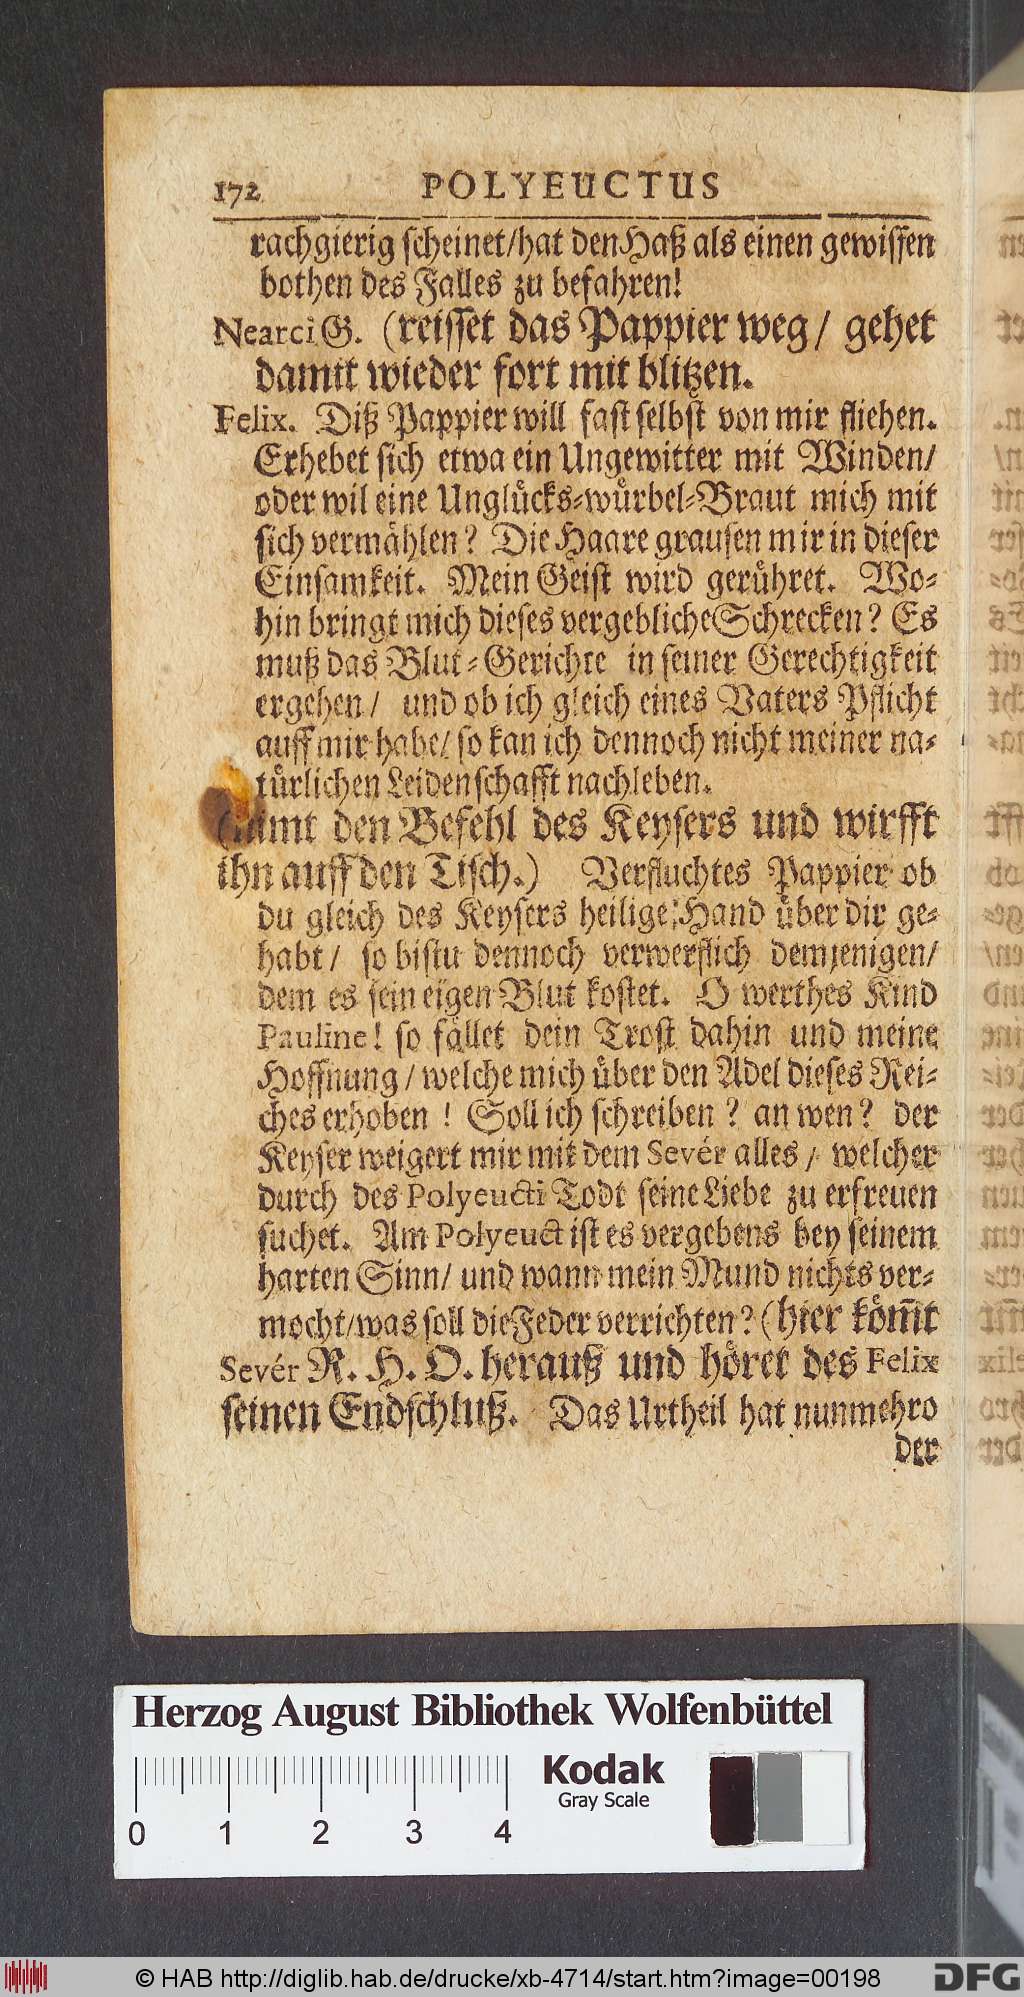 172 POLYEUCTUS
rachgierig scheinet/hat den Haß als einen gewissen
bothen des Falles zu befahren!
Nearci G. (reisset das Pappier weg/ gehet
damit wieder fort mit blitzen.
Felix. Diß Pappier will fast selbst von mir fliehen.
Erhebet sich etwa ein Ungewitter mit Winden/
oder wil eine Unglücks-würbel-Braut mich mit
sich vermählen? Die Haare grausen mir in dieser
Einsamkeit. Mein Geist wird gerühret. Wo-
hin bringt mich dieses vergebliche Schrecken? Es
muß das Blut-Gerichte in seiner Gerechtigkeit
ergehen/ und ob ich gleich eines Vaters Pflicht
auff mir habe/ so kan ich dennoch nicht meiner na-
türlichen Leidenschafft nachleben.
(nimt den Befehl des Keysers und wirfft
ihn auff den Tisch.) Verfluchtes Pappier ob
du gleich des Keysers heilige Hand über dir ge-
habt/ so bistu dennoch verwerflich demjenigen/
dem es sein eigen Blut kostet. O werthes Kind
Pauline! so fället dein Trost dahin und meine
Hoffnung/welche mich über den Adel dieses Rei-
ches erhoben! Soll ich schreiben? an wen? der
Keyser weigert mir mit dem Sevér alles/ welcher
durch des Polyeucti Todt seine Liebe zu erfreuen
suchet. Am Polyeuct ist es vergebens bey seinem
harten Sinn/ und wann mein Mund nichts ver-
mocht/was soll die Feder verrichten? (hier köm̃t
Sevér R. H. O. herauß und höret des Felix
seinen Endschluß. Das Urtheil hat nunmehro
der
Herzog August Bibliothek Wolfenbüttel
Kodak
Gray Scale
0 1 2 3 4
© HAB http://diglib.hab.de/drucke/xb-4714/start.htm?image=00198
DFG